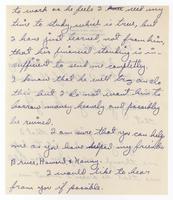 to work as he feels I need my
time to study which is true, but
I have just learned, not from him,
that his financial standing is in-
sufficient to send me completely.
I know that he will try and do
this but I do not want him to
borrow money heavily and possibly
be ruined.
I am sure that you can help
me as you have helped my friends
Bruce, Howard & Nanny.
I would like to hear
from you if possible.